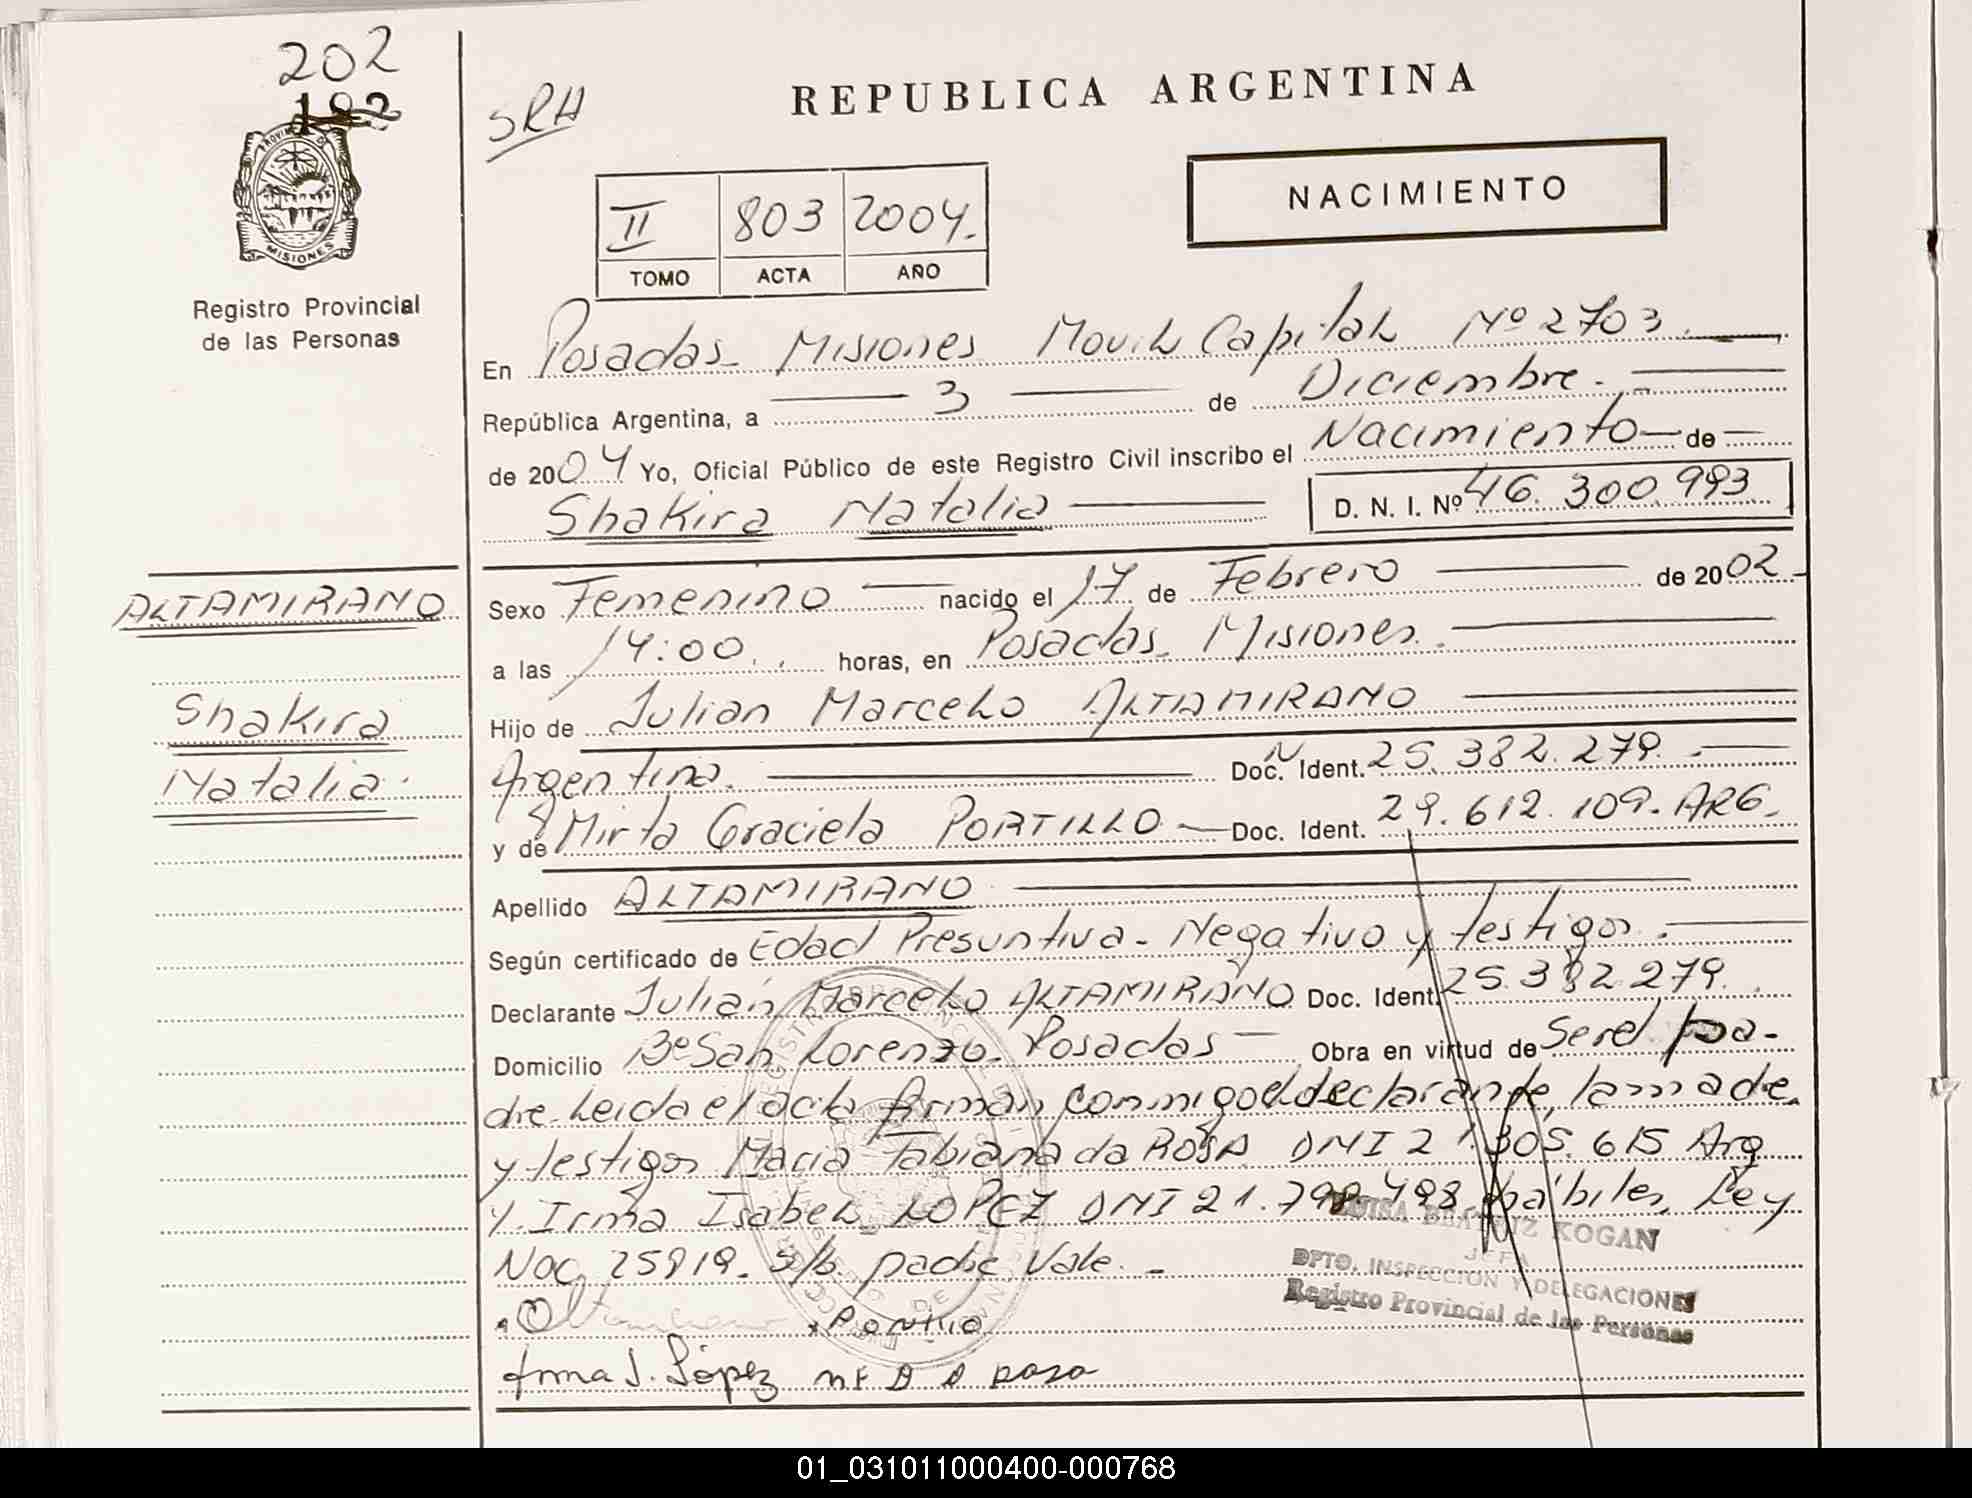 202
192
SRH
REPUBLICA ARGENTINA
PROVINCIA DE
MISIONES
Registro Provincial
de las Personas
NACIMIENTO
II 803 2004.
TOMO ACTA AÑO
En Posadas Misiones Movil Capital Nº 2703.
República Argentina, a 3 de Diciembre.
de 2004 Yo, Oficial Público de este Registro Civil inscribo el Nacimiento de
Shakira Natalia D. N. I. Nº 46.300.993
ALTAMIRANO
Shakira
Natalia.
Sexo Femenino nacido el 17 de Febrero de 2002
a las 14:00 horas, en Posadas Misiones.
Hijo de Julian Marcelo ALTAMIRANO
Argentina. Doc. N Ident. 25.382.279.
y de Mirta Graciela PORTILLO Doc. Ident. 29.612.109. ARG.
Apellido ALTAMIRANO
Según certificado de Edad Presuntiva. Negativo y testigos.
Declarante Julián Marcelo ALTAMIRANO Doc. Ident. 25.382.279.
Domicilio Bº San Lorenzo. Posadas Obra en virtud de Ser el pa-
dre. Leida el acta firman conmigo el declarante, la madre.
y testigos Maria Fabiana da ROSA DNI 21.305.615 Arg
y Irma Isabel LOPEZ DNI 21.798.498 hábiles, Ley
Nac 25819. s/b padre Vale.
LUISA BEATRIZ KOGAN
JEFA
DPTO. INSPECCION Y DELEGACIONES
Registro Provincial de las Personas
Portillo
Irma I. López
01_031011000400-000768